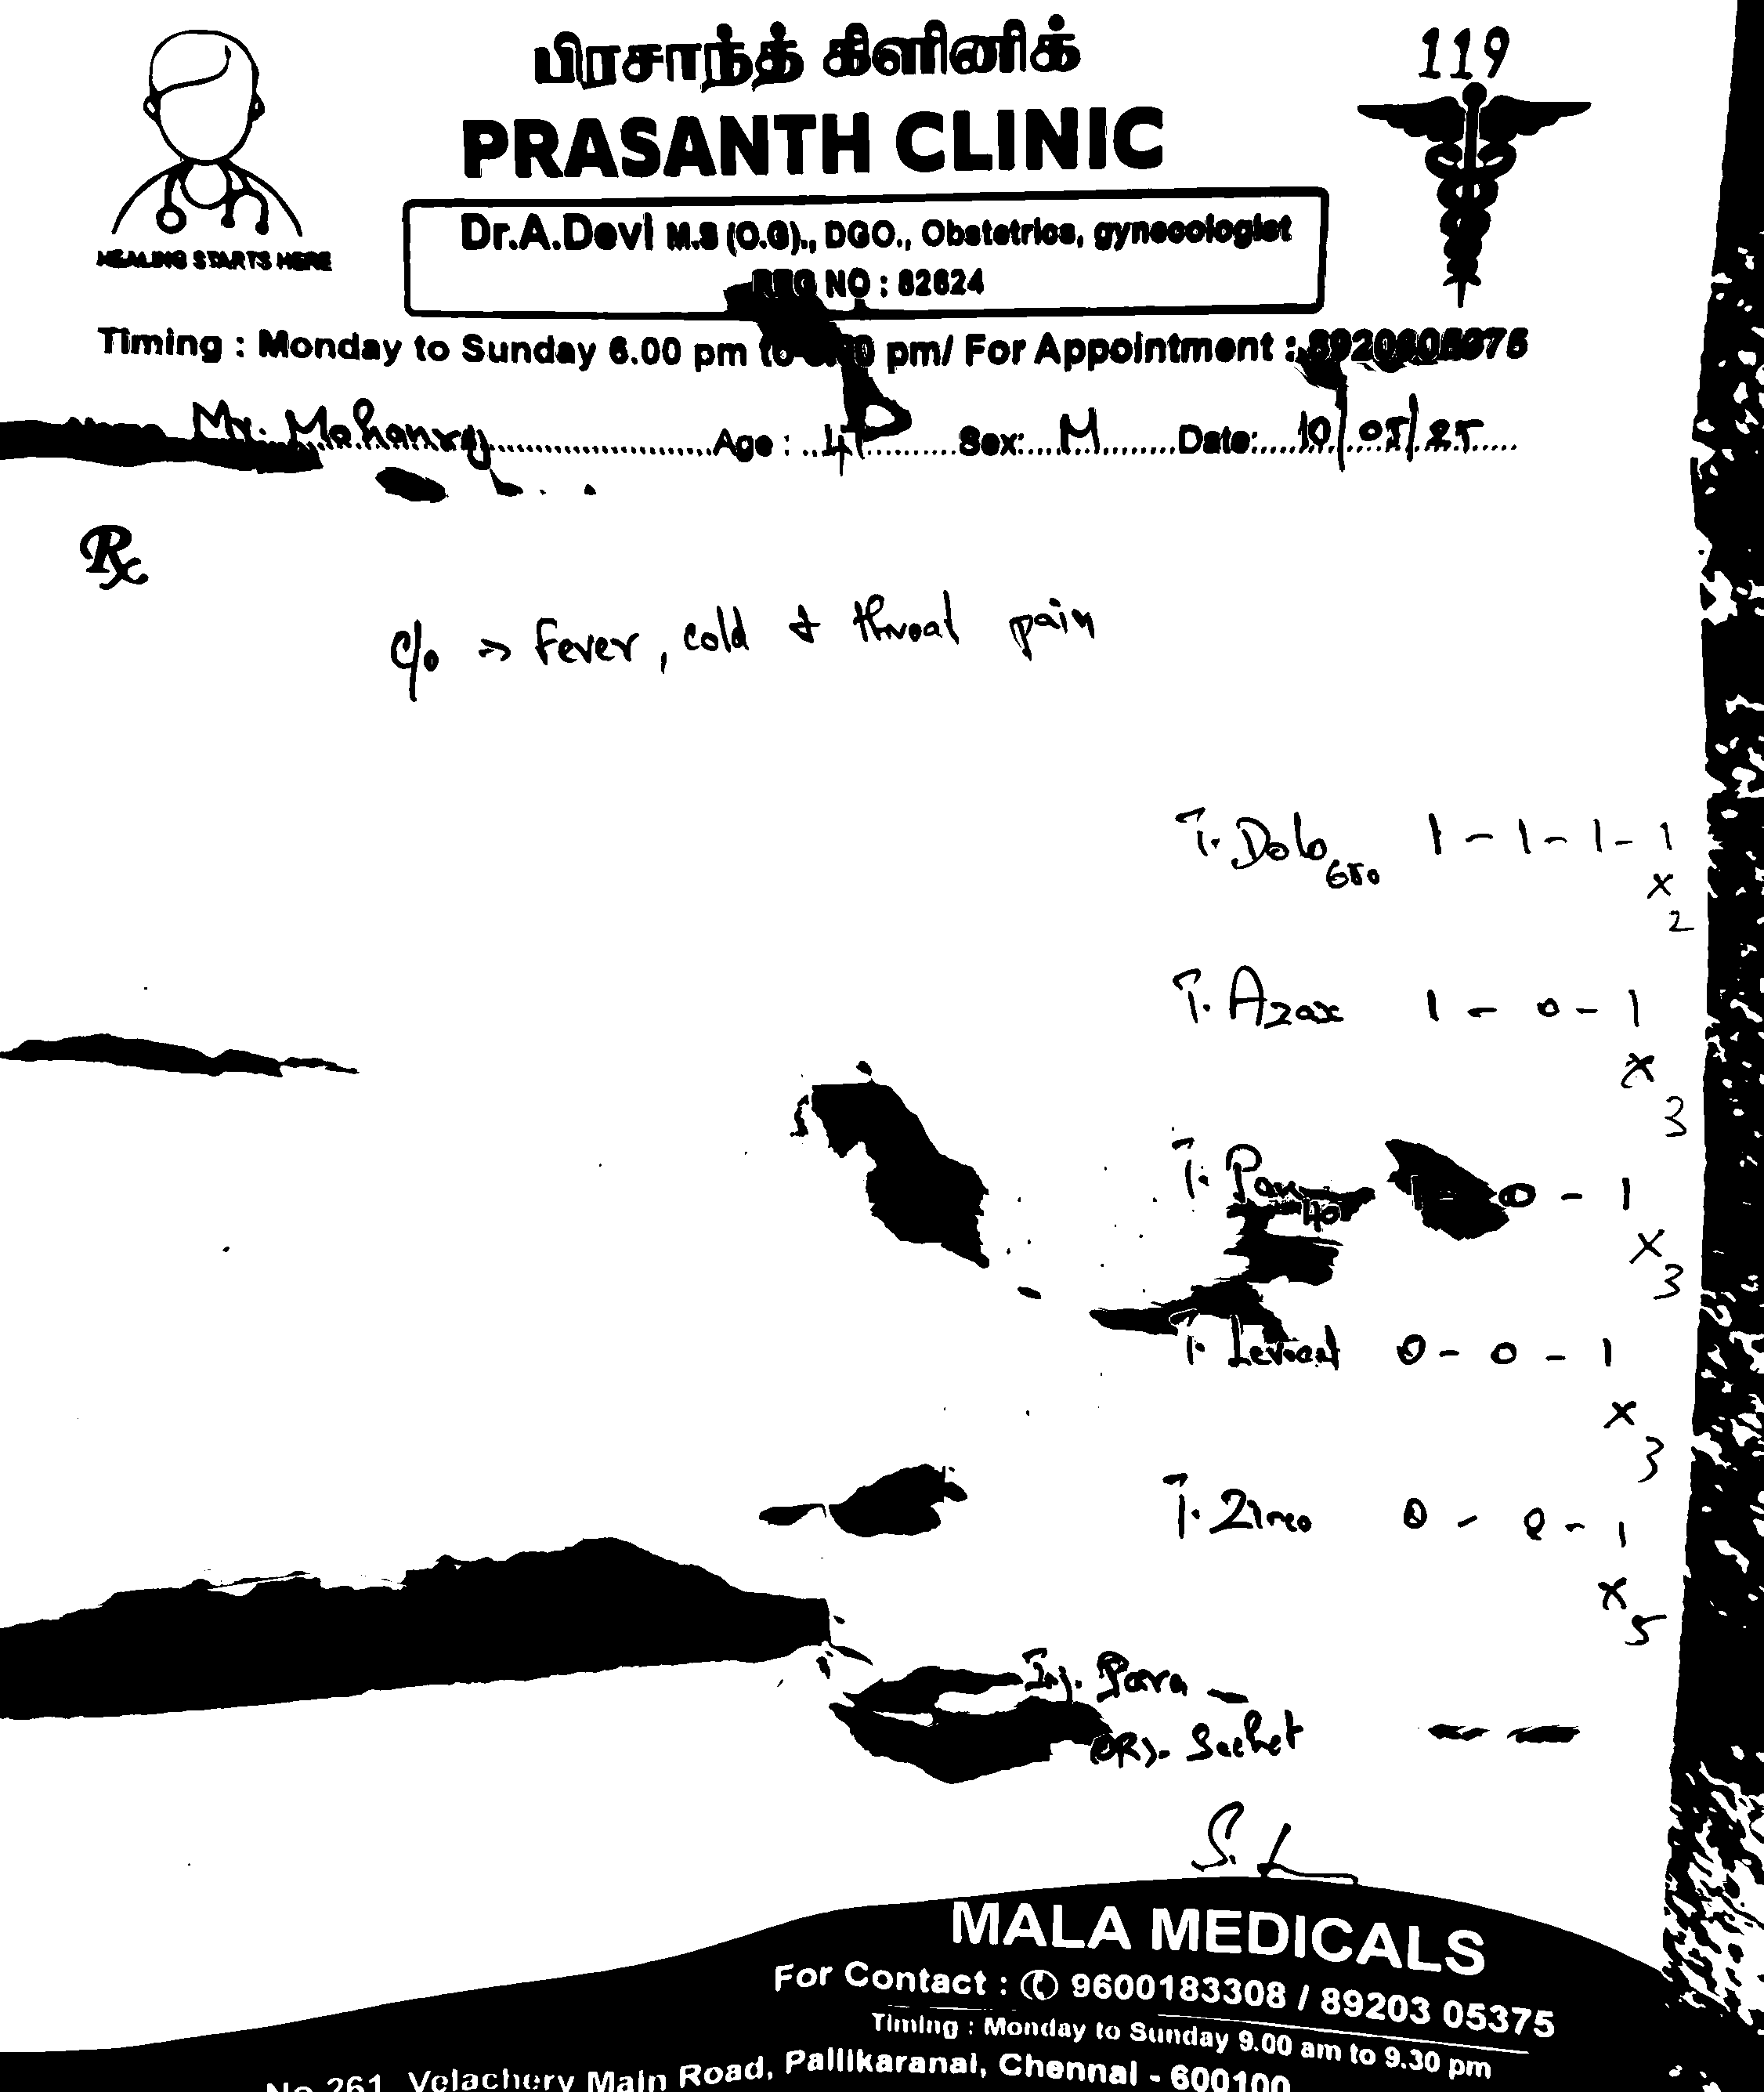 பிரசாந்த் கிளினிக்
119
PRASANTH CLINIC
HEALING STARTS HERE
Dr.A.Devi M.S (O.G)., DGO., Obstetrics, gynecologist
REG NO : 82624
Timing : Monday to Sunday 6.00 pm to pm/ For Appointment :
Mr. Mohanraj Age : Sex: M Date: 10/05/25
Rx
c/o => Fever, cold & throat pain
T. Dolo 650 1 - 1 - 1 - 1
x 2
T. Azax 1 - 0 - 1
x 3
T. Pan 40 1 - 0 - 1
x 3
T. 0 - 0 - 1
x 3
T. 0 - 0 - 1
x 5
Inj. Para
ORS. Sachet
MALA MEDICALS
For Contact : 9600183308 / 89203 05375
Timing : Monday to Sunday 9.00 am to 9.30 pm
No 261, Velachery Main Road, Pallikaranai, Chennai - 600100